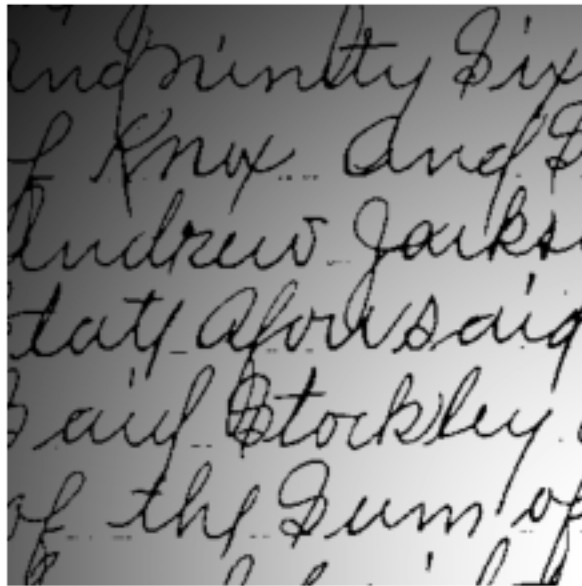 and ninety Six
of Knox and S
Andrew Jackso
State Aforesaid
Said Stockley
of the Sum of